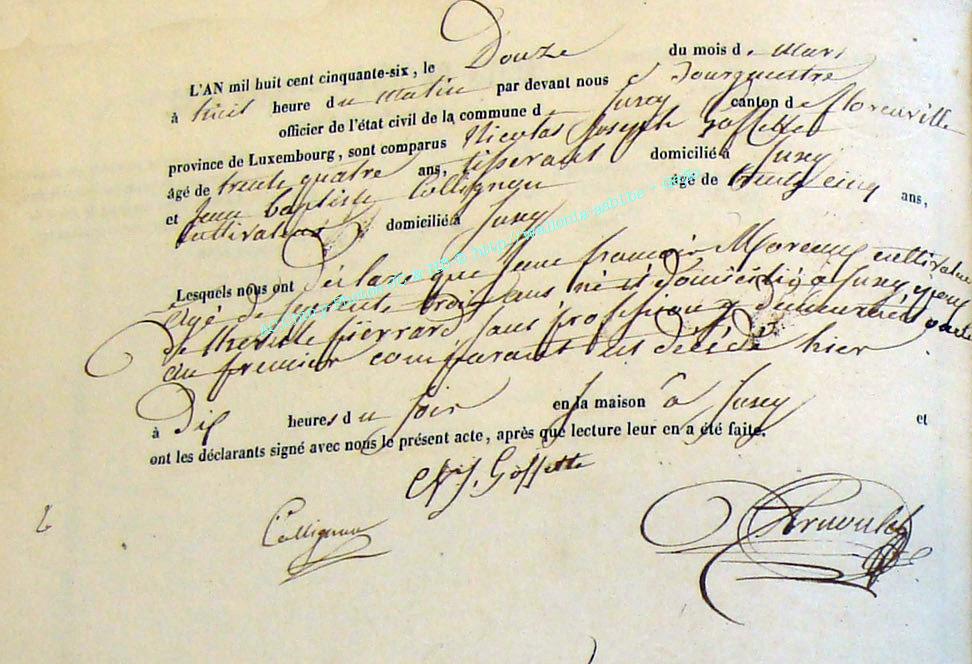 L'AN mil huit cent cinquante-six, le Douze du mois de Mars
à huit heure du matin par devant nous Bourgmestre
officier de l'état civil de la commune d Juzey canton de florenville
province de Luxembourg, sont comparus Nicolas Joseph Goffette
âgé de trente quatre ans, tisserant domicilié à Juzey
et Jean baptiste Collignon âgé de trente cinq ans,
cultivateur domicilié à Juzey
Lesquels nous ont déclaré que Jean francois cultivateur
agé de trois ans né et domicilié à Juzey
de pierrard sans profession
au premier comparant est décédé hier
à Dix heures du soir en sa maison à Juzey et
ont les déclarants signé avec nous le présent acte, après que lecture leur en a été faite.
N. J. Goffette
Collignon
Arnould